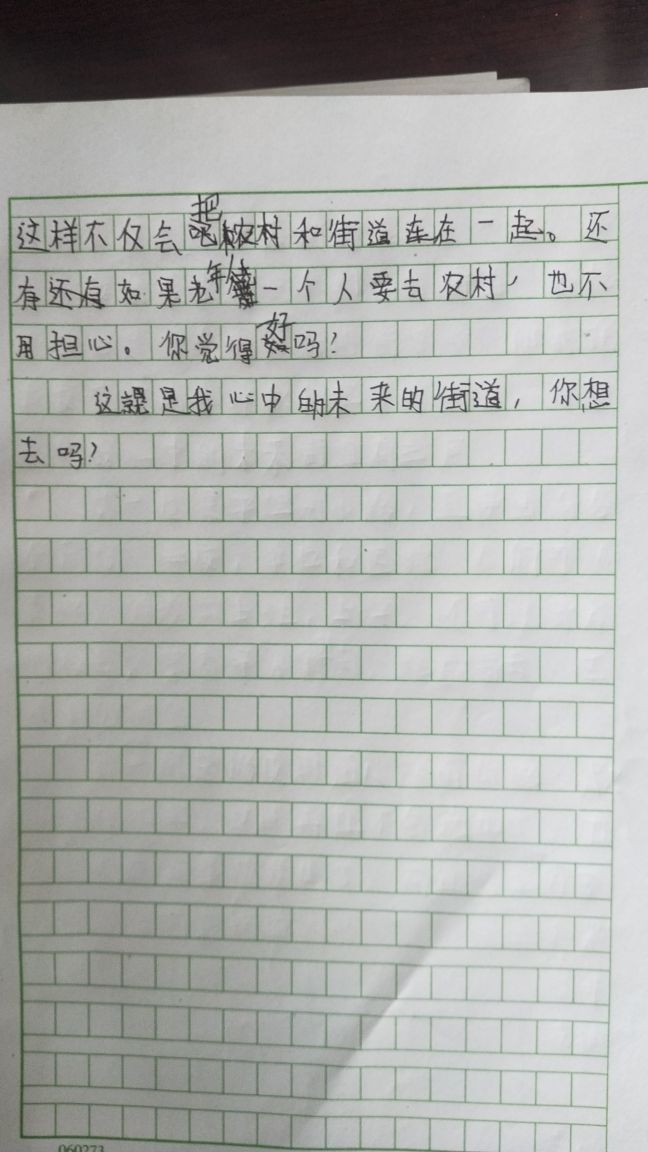 这样不仅会把农村和街道连在一起。还
有还有如果老年一个人要去农村，也不
用担心。你觉得好吗？
这就是我心中的未来的街道，你想
去吗？
060273